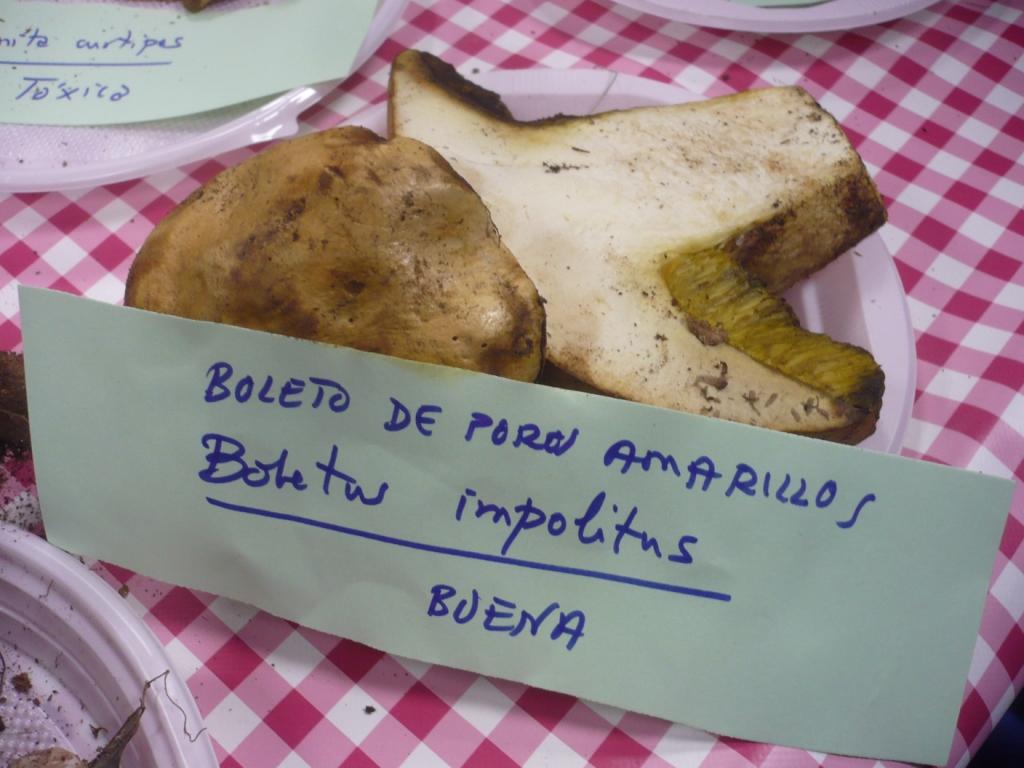 nita curtipes
Tóxica
BOLETO DE POROS AMARILLOS
Boletus impolitus
BUENA